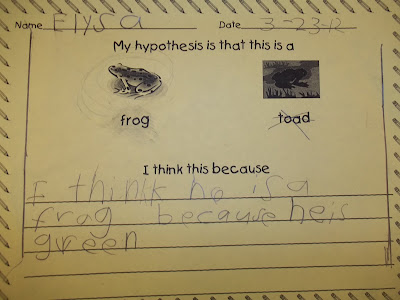 Name Elysa Date 3-23-12
My hypothesis is that this is a
frog toad
I think this because
I think he is a
frog because heis
green